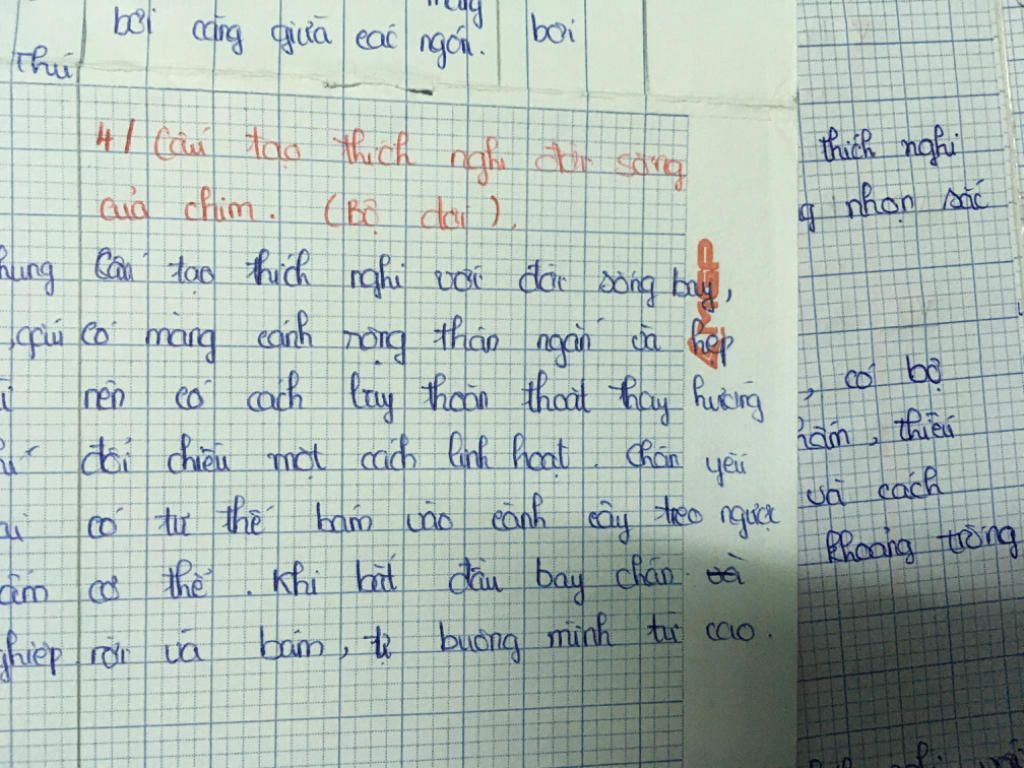 bơi căng giữa các ngón. bơi
Thú
4/ Cấu tạo thích nghi đời sống
của chim. (Bộ dơi).
hung Cấu tạo thích nghi với đời sống bay,
có màng cánh rộng thân ngắn và hẹp
nên có cách bay thoăn thoắt thay hướng
đổi chiều một cách linh hoạt. Chân yếu
có tư thế bám vào cành cây treo ngược
cơ thể. Khi bắt đầu bay chân
rời và bám, tự buông mình từ cao.
thích nghi
g nhọn sắc
, có bộ
, thiếu
và cách
khoảng trống